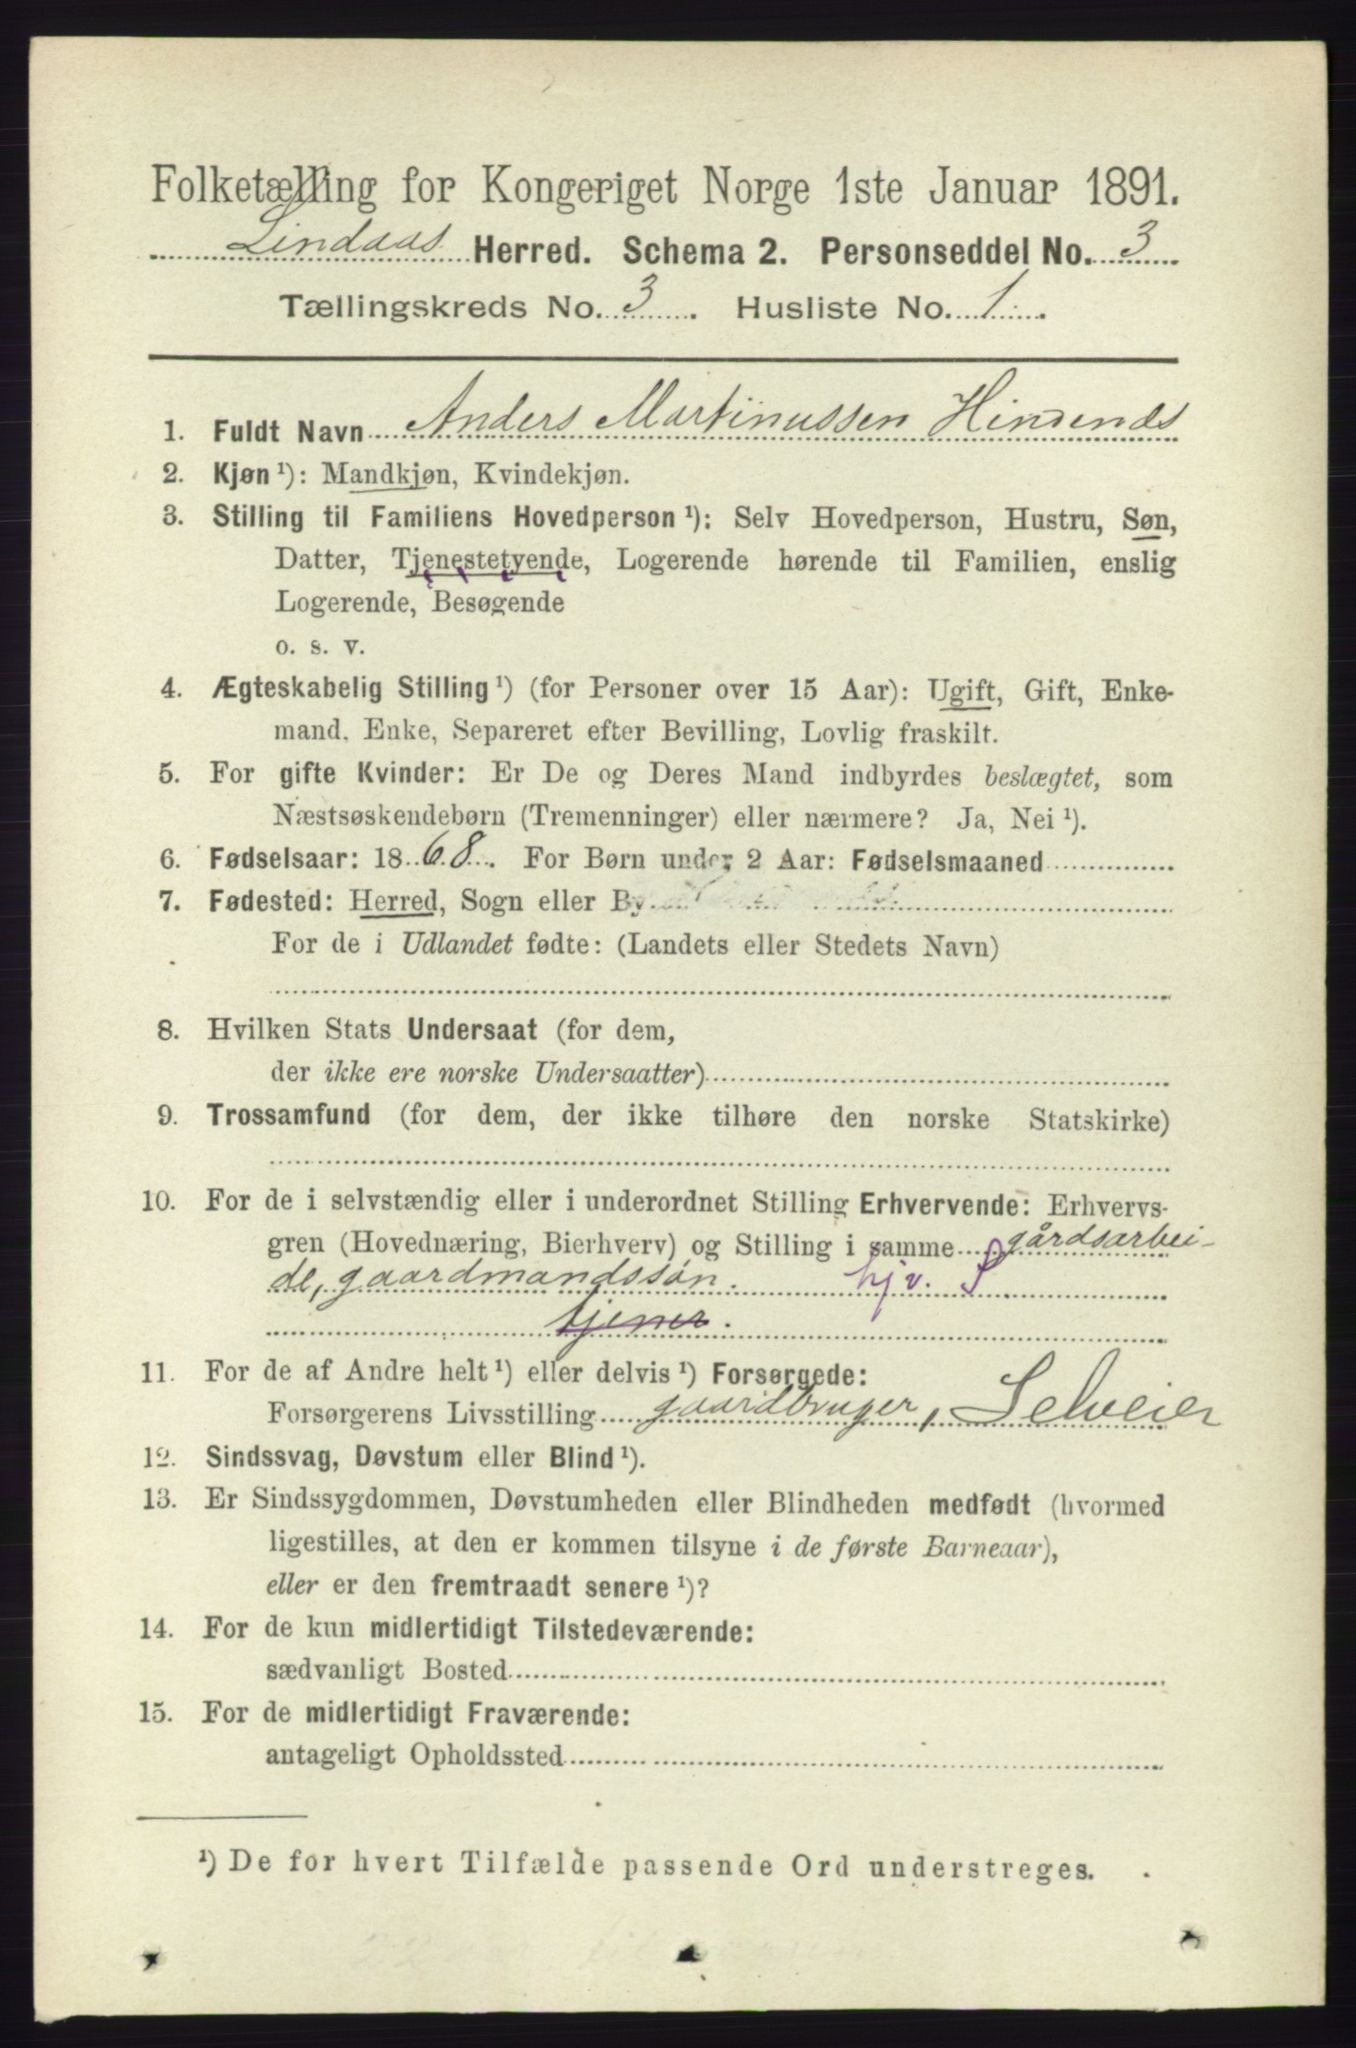 Folketælling for Kongeriget Norge 1ste Januar 1891.
Lindaas Herred. Schema 2. Personseddel No. 3
Tællingskreds No. 3. Husliste No. 1.
1. Fuldt Navn Anders Martinussen Hindenes
2. Kjøn ¹): Mandkjøn, Kvindekjøn.
3. Stilling til Familiens Hovedperson ¹): Selv Hovedperson, Hustru, Søn,
Datter, Tjenestetyende, Logerende hørende til Familien, enslig
Logerende, Besøgende
o. s. v.
4. Ægteskabelig Stilling ¹) (for Personer over 15 Aar): Ugift, Gift, Enke-
mand, Enke, Separeret efter Bevilling, Lovlig fraskilt.
5. For gifte Kvinder: Er De og Deres Mand indbyrdes beslægtet, som
Næstsøskendebørn (Tremenninger) eller nærmere? Ja, Nei ¹).
6. Fødselsaar: 1868. For Børn under 2 Aar: Fødselsmaaned
7. Fødested: Herred, Sogn eller By
For de i Udlandet fødte: (Landets eller Stedets Navn)
8. Hvilken Stats Undersaat (for dem,
der ikke ere norske Undersaatter)
9. Trossamfund (for dem, der ikke tilhøre den norske Statskirke)
10. For de i selvstændig eller i underordnet Stilling Erhvervende: Erhvervs-
gren (Hovednæring, Bierhverv) og Stilling i samme gårdsarbei-
de, gaardmandssøn. hjv. S
tjener.
11. For de af Andre helt ¹) eller delvis ¹) Forsørgede:
Forsørgerens Livsstilling gaardbruger, Selveier
12. Sindssvag, Døvstum eller Blind ¹).
13. Er Sindssygdommen, Døvstumheden eller Blindheden medfødt (hvormed
ligestilles, at den er kommen tilsyne i de første Barneaar),
eller er den fremtraadt senere ¹)?
14. For de kun midlertidigt Tilstedeværende:
sædvanligt Bosted
15. For de midlertidigt Fraværende:
antageligt Opholdssted
¹) De for hvert Tilfælde passende Ord understreges.